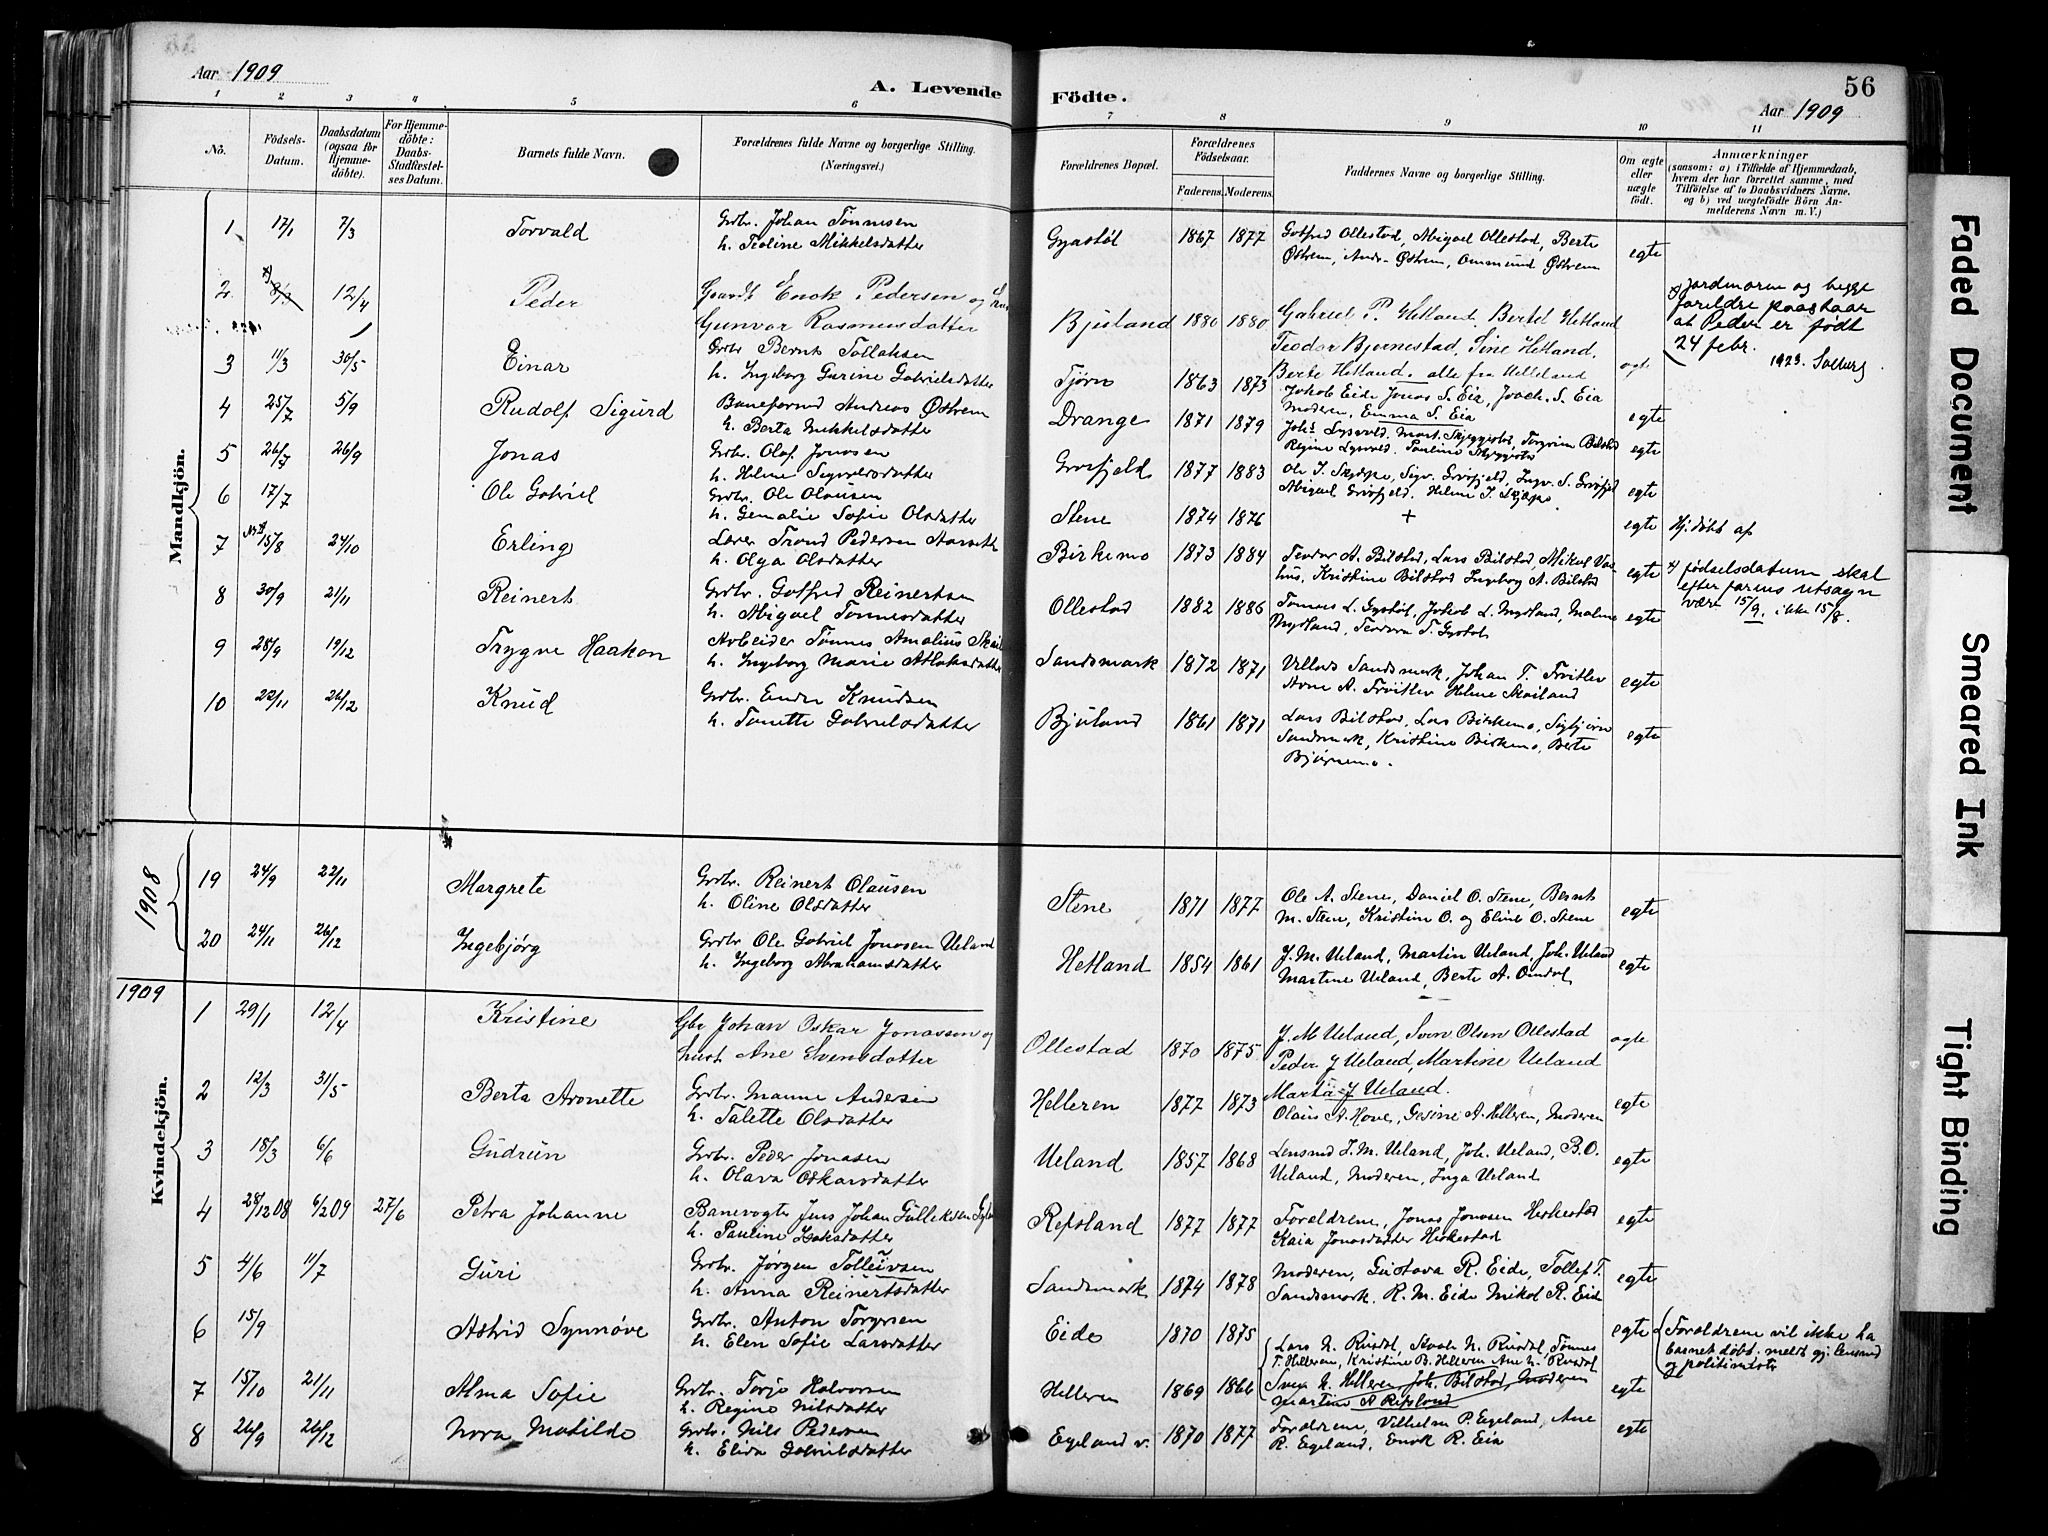 Aar 1909
A. Levende Födte.
56
Aar 1909
1 2 3 4 5 6 7 8 9 10 11
No.
Födsels-Datum.
Daabsdatum (ogsaa for Hjemmedöbte).
For Hjemmedöbte: Daabs-Stadfestelses Datum.
Barnets fulde Navn.
Forældrenes fulde Navne og borgerlige Stilling. (Næringsvei.)
Forældrenes Bopæl.
Forældrenes Födselsaar.
Faderens. Moderens.
Faddernes Navne og borgerlige Stilling.
Om ægte eller uægte født.
Anmærkninger
(saasom: a) i Tilfælde af Hjemmedaab, hvem der har forrettet samme, med Tilföielse af to Daabsvidners Navne, og b) ved uægtefödte Börn Anmelderens Navn m. V.)
Mandkjön.
1 17/1 7/3 Torvald Grdbr. Johan Tønnesen
h. Teoline Mikkelsdatter Gyastøl 1867 1877 Gotfred Ollestad, Abigael Ollestad, Berte
Østrem, Østrem, Ommund Østrem egte
2 8/3 12/4 Peder Gaardbr Enok Pedersen og
Gunvor Rasmusdatter Bjuland 1880 1880 Gabriel P. Hetland, Bertel Hetland
Teodor Bjernestad, Sine Hetland,
Berte Hetland. alle fra Helleland egte
jordmoren og begge
foreldre paastaar
at Peder er født
24 febr.
1923. Solberg
3 11/3 30/5 Einar Grdbr Bernt Tollaksen
h. Ingeborg Gurine Gabrielsdatter Tjørn 1863 1873 Jakob Eide Jonas S. Eia, Joach. S. Eia
Moderen, Emma S. Eia egte
4 25/7 5/9 Rudolf Sigurd Baneformd Andreas Østrem
h. Berta Mikkelsdatter Drange 1871 1879 Joh. Lysvold, Mart. Skjeggestad, Torgrim Bilstad
Regine Lysvold, Pauline Skjeggestad egte
5 26/7 26/9 Jonas Grdbr. Olaf Jonasen
h. Helene Sigvaldsdatter Grøsfjeld 1877 1883 Ole T. Skjæpe, Sigv. Grøsfjeld, Ingv. S. Grøsfjel
Abigael Grøsfjeld. Helene T. Skjæpe. egte
6 17/7 Ole Gabriel Grdbr. Ole Olausen
h. Gemalie Sofie Olsdatter Stene 1874 1876 + egte Hj. døbt af
7 15/8 24/10 Erling Lærer Trond Pedersen
h. Olga Olsdatter Birkemo 1873 1884 Teodor A. Bilstad, Lars Bilstad, Mikael Vas-
hus, Kristine Bilstad Ingeborg A. Bilstad egte
fødselsdatum skal
efter farens utsagn
være 15/9. ikke 15/8.
8 30/9 21/11 Reinert Grdbr. Gotfred Reinertsen
h. Abigael Tønnesdatter Ollestad 1882 1886 Tønnes L. Gystøl, Jakob L. Mydland, Malene
Mydland, Teodora T. Gystøl egte
9 28/9 19/12 Trygve Haakon Arbeider Tønnes Amalius
h. Ingeborg Marie Atlaksdatter Sandsmark 1872 1871 Villads Sandsmark, Johan T. Frøitlev
Arne A. Frøitlev Helene Skailand egte
10 22/11 26/12 Knud Grdbr. Endre Knudsen
h. Tonette Gabrielsdatter Bjuland 1861 1871 Lars Bilstad, Lars Birkemo, Sigbjørn
Sandsmark, Kristine Birkemo, Berte
Bjørnemo. egte
1908
19 24/9 22/11 Margrete Grdbr. Reinert Olausen
h. Oline Olsdatter Stene 1871 1877 Ole A. Stene, Daniel O. Stene, Bernt
M. Stene, Kristine O. og Eline O. Stene egte
20 24/11 26/12 Ingebjørg Grdbr Ole Gabriel Jonasen Ueland
h. Ingeborg Abrahamsdatter Hetland 1854 1861 J. M. Ueland, Martin Ueland, Joh. Ueland
Martine Ueland, Berte A. Omdal egte
1909
Kvindekjön.
1 29/1 12/4 Kristine Gbr Johan Oskar Jonassen og
hust Ane Svensdatter Ollestad 1870 1875 J. M Ueland, Sven Olsen Ollestad
Peder J Ueland, Martine Ueland
Marta J Ueland. egte
2 12/3 31/5 Berta Aronette Grdbr. Manne Andersen
h. Talette Olsdatter Helleren 1877 1873 Olaus A. Hove, Gesine A. Helleren, Moderen egte
3 18/3 6/6 Gudrun Grdbr. Peder Jonasen
h. Olava Oskarsdatter Ueland 1857 1868 Lensmd J. M. Ueland, Joh. Ueland, B. O.
Ueland, Moderen, Inga Ueland egte
4 28/12 08 6/2 09 27/6 Petra Johanne Banevogter Jens Johan Gulleksen
h. Pauline Isaksdatter Refsland 1877 1877 Foreldrene, Jonas Jonasen Heskestad
Kaia Jonasdatter Heskestad egte
5 4/6 11/7 Guri Grdbr. Jørgen Tolleivsen
h. Anna Reinertsdatter Sandsmark 1874 1878 Moderen, Gustava R. Eide, Tollef T.
Sandsmark. R. M. Eide Mikal R. Eide egte
6 15/9 Astrid Synnøve Grdbr. Anton Torgersen
h. Elen Sofie Larsdatter Eide 1870 1875 egte Foreldrene vil ikke ha
barnet døbt. meldt gj. lensmd
og politimester
7 15/10 21/11 Alma Sofie Grdbr. Torjo Halvorsen
h. Regine Nilsdatter Helleren 1869 1866 Lars N. Rusdal, N. Rusdal, Tønnes
T. Helleren, Kristine B. Helleren Ane N. Rusdal
Sven N. Helleren, Joh. Bilstad, Moderen
Martine A Refsland egte
8 26/9 26/12 Nora Matilde Grdbr. Nils Pedersen
h. Elida Gabrielsdatter Egeland v. 1870 1877 Foreldrene, Vilhelm P. Egeland, Ane
R. Egeland, Enok R. Eia egte
Faded Document
Smeared Ink
Tight Binding